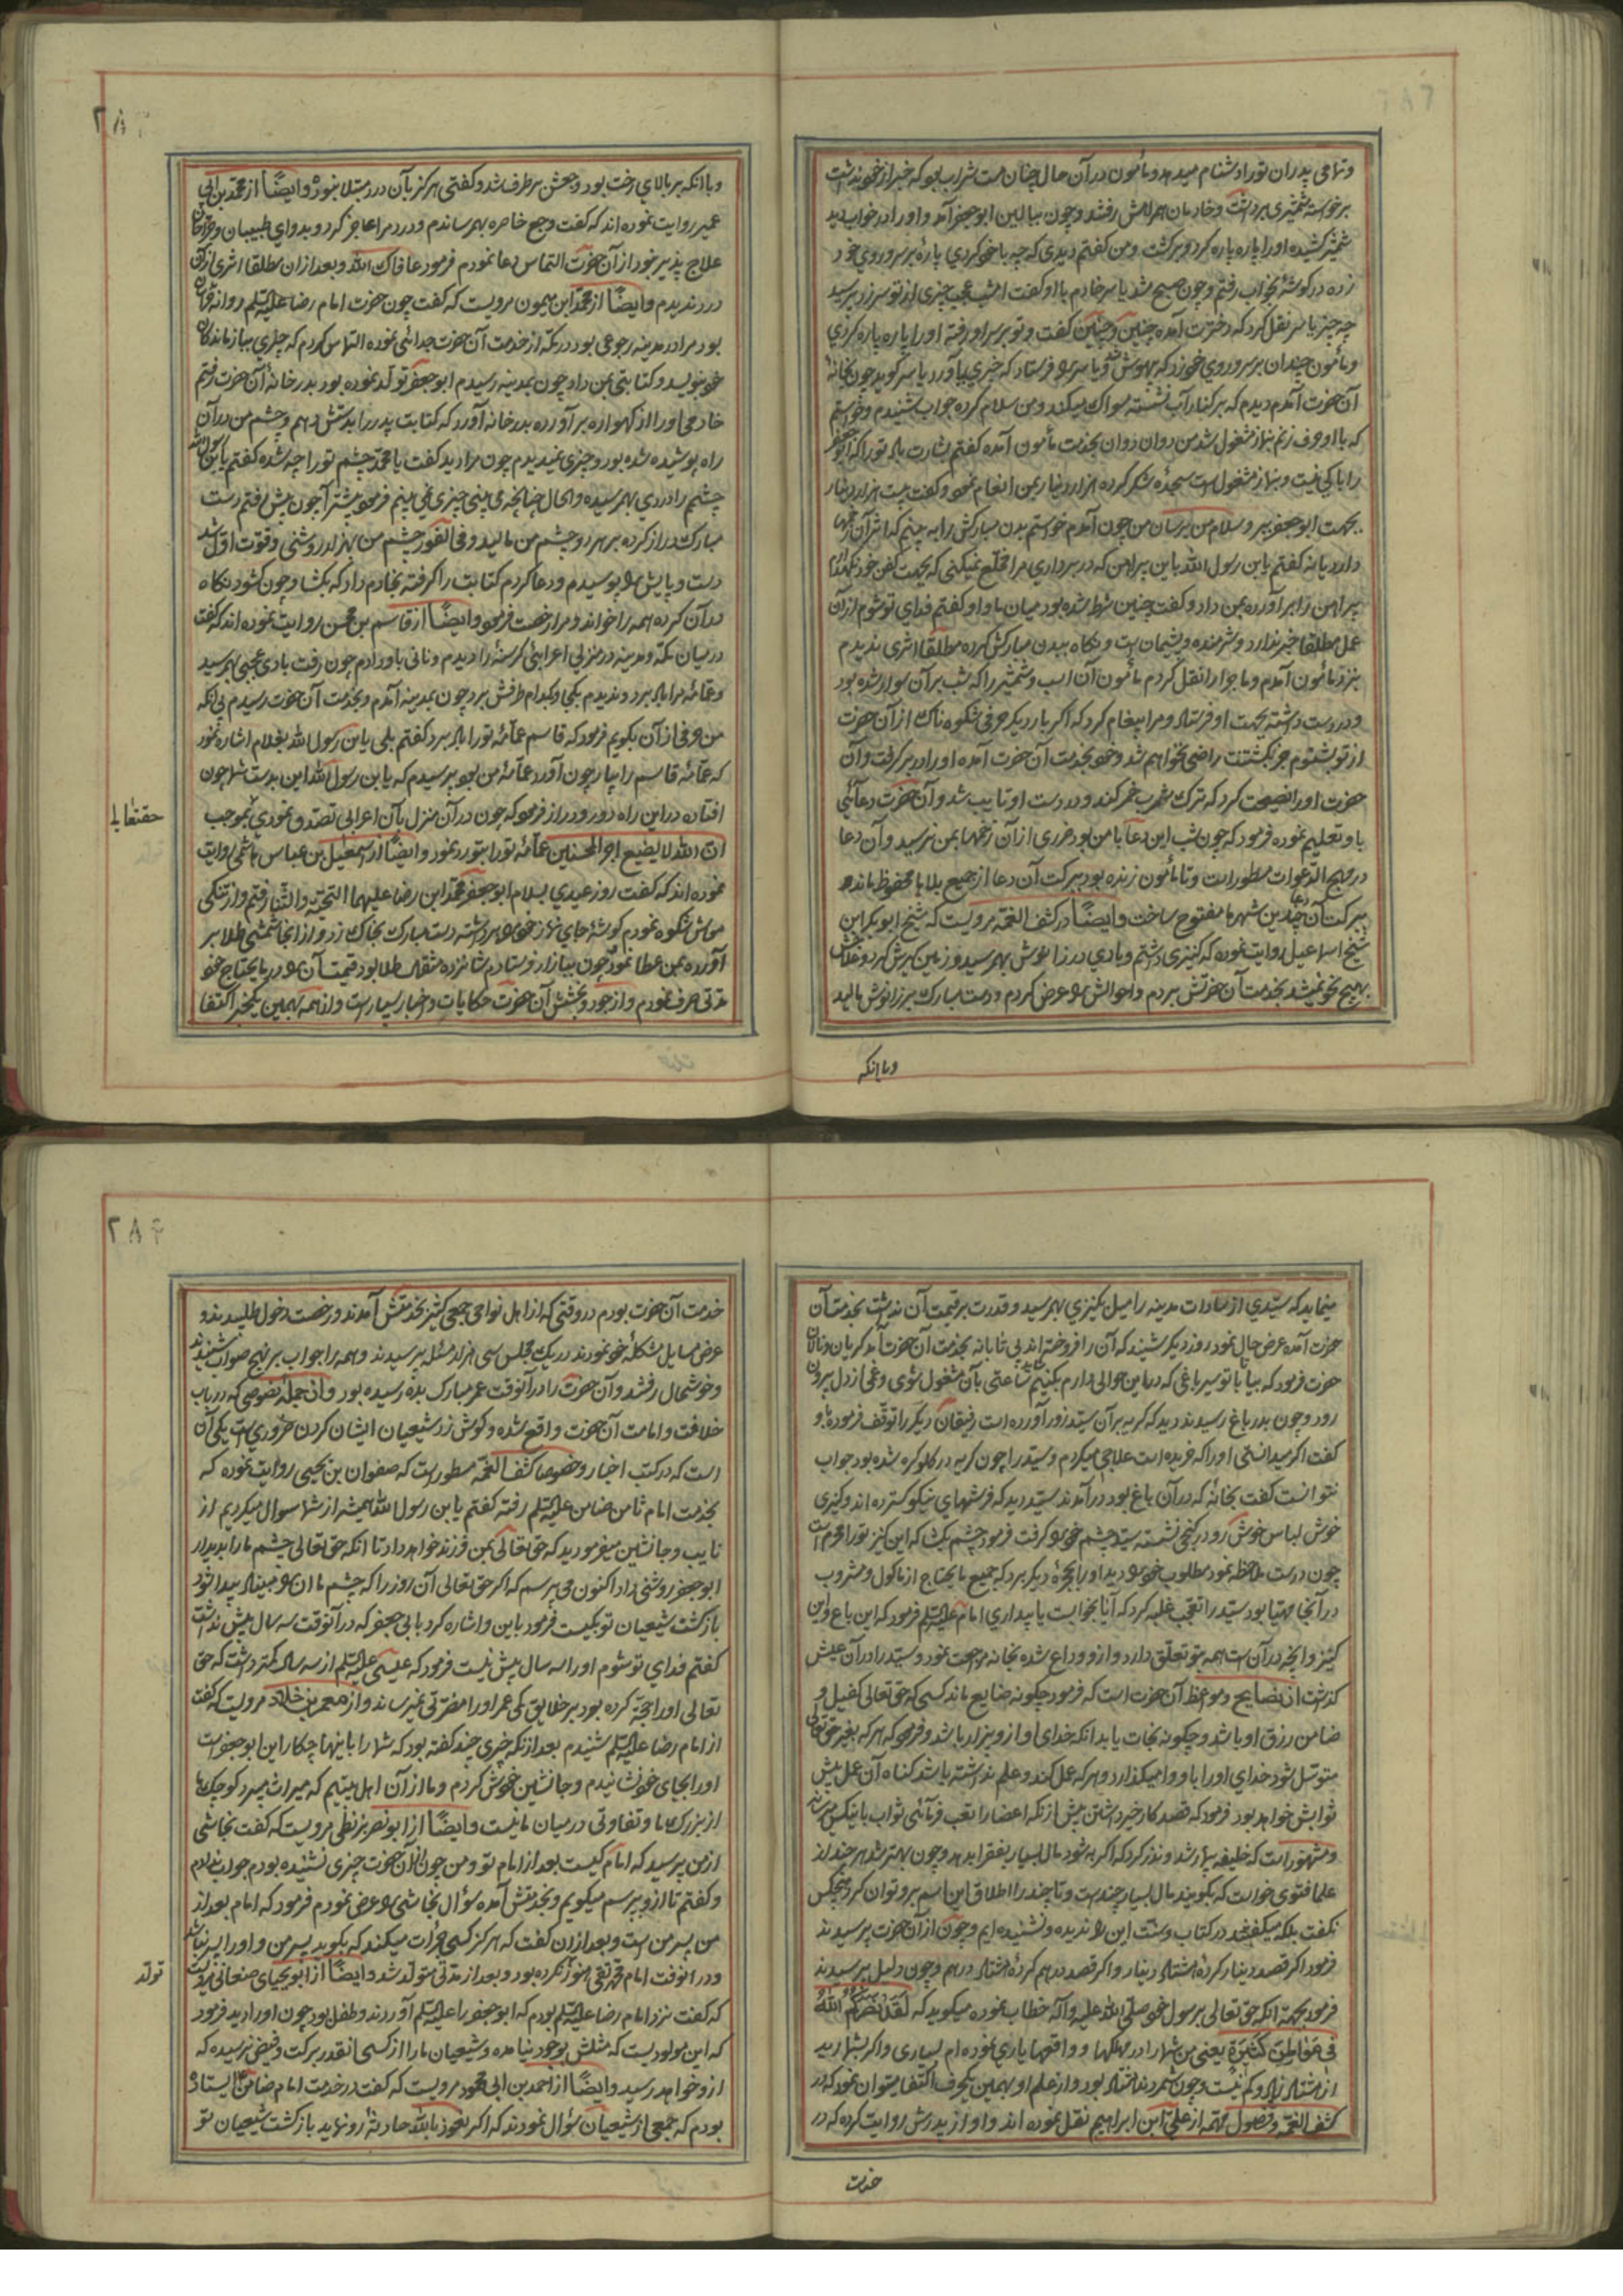 وتمامی پدران تورا دشنام میدهد ومأمون درآن حال چنان مست شراب بود که خبر از خود نداشت
برخواسته شمشیری برداشت وخادمان همراهش رفتند وچون ببالین ابوجعفر آمد واورا در خواب دید
شمشیر کشیده اورا پاره پاره کرد وبرکشت ومن کفتم دیدی که چه با خود کردي پارهٔ بر سر وروي خود
زده در کوشهٔ بخواب رفتم وچون صبح شد یاسر خادم با او کفت امشب عجب چیزی از تو سر زد پرسید
چه چیز یاسر نقل کرد که دخترت آمده چنین وچنین کفت وتو بر سر او رفته اورا پاره پاره کردي
ومأمون چندان بر سر وروي خود زد که بیهوش شد ویاسر را فرستاد که خبری بیاورد یاسر کوید چون بخانهٔ
آن حضرت آمدم دیدم که بر کنار آب نشسته سواك میکند ومن سلام کرده جواب شنیدم وخواستم
که با او حرف زنم بنماز مشغول شد من دوان دوان بخدمت مأمون آمده کفتم بشارت باد تورا که ابوجعفر
را باکی نیست وبنماز مشغول است سجدهٔ شکر کرده هزار دینار بمن انعام نمود وکفت بیست هزار دینار
بجهت ابوجعفر ببر وسلام من برسان من چون آمدم خواستم بدن مبارکش را به بینم که اثر آن زخمها
دارد یا نه کفتم یابن رسول الله باین پیراهن که در برداری مرا مخلّع نمیکنی که بجهت کفن خود نکهدارم
پیراهن را برآورده بمن داد وکفت چنین شرط شده بود میان ما و او کفتم فدای تو شوم از آن
عمل مطلقا خبر ندارد وشرمنده وپشیمان است ونکاه ببدن مبارکش کرده مطلقا اثری ندیدم
بنزد مأمون آمدم وماجرا را نقل کردم مأمون آن اسب وشمشیر را که شب برآن سوار شده بود
ودر دست داشته بجهت او فرستاد ومرا پیغام کرد که اکر بار دیکر حرفی شکوه ناك از آن حضرت
از تو بشنوم جز بکشتنت راضی نخواهم شد وخود بخدمت آن حضرت آمده اورا در بر کرفت وآن
حضرت اورا نصیحت کرد که ترك شرب خمر کند ودر دست او تایب شد وآن حضرت دعائی
باو تعلیم نموده فرمود که چون شب این دعا با من بود ضرری از آن زخمها بمن نرسید وآن دعا
در مهج الدعوات مسطور است وتا مأمون زنده بود ببرکت آن دعا از جمیع بلایا محفوظ ماند و
ببرکت آن دعا چندین شهرها مفتوح ساخت وایضًا در کشف الغمّه مرویست که شیخ ابو بکر ابن
شیخ اسماعیل روایت نموده که کنیزی داشتم وبادي در زانوش بهم رسید وزمین کیرش کرد وعلاجش
بهیچ نحو نمیشد بخدمت آن حضرتش بردم واحوالش را عرض کردم ودست مبارك بر زانوش مالید
وباانکه
۲۸۳
وباانکه بر بالاي رخت بود وجعش برطرف شد وکفتی هرکز بآن درد مبتلا نبود وایضًا از محمّد بن ابی
عمیر روایت نموده اند که کفت وجع خاصره بهم رساندم ودرد مرا عاجز کرد وبدواي طبیبان وجراحان
علاج پذیر نبود از آن حضرت التماس دعا نمودم فرمود عافاك الله وبعد از ان مطلقا اثری از آن
درد ندیدم وایضًا از محمّد ابن میمون مرویست که کفت چون حضرت امام رضا علیه السّلم روانهٔ خراسان
بود مرا در مدینه رجوعی بود در مکّه از خدمت آن حضرت جدائی نموده التماس کردم که چیزي ببازماندکان
خود بنویسد وکتابتی بمن داد چون بمدینه رسیدم ابوجعفر تولّد نموده بود بدر خانهٔ آن حضرت رفتم
خادمی اورا از کهواره برآورده بدر خانه آورد که کتابت پدر را بدستش دهم وچشم من درآن
راه پوشیده شده بود وچیزی نمیدیدم چون مرا دید کفت یا محمّد چشم تورا چه شده کفتم یابن رسول الله
چشم را دردي بهم رسیده والحال چنانچه می بینی چیزی نمی بینم فرمود پیشتر آ چون پیش رفتم دست
مبارك دراز کرده بر هر دو چشم من مالید وفی الفور چشم من بهتر از روشنی وقوّت اوّل شد
دست وپایش را بوسیدم ودعا کردم کتابت را کرفته بخادم داد که بکشا وچون کشود نکاه
درآن کرده همه را خواند ومرا رخصت فرمود وایضًا از قاسم بن محسن روایت نموده اند که کفت
در میان مکّه ومدینه در منزلی اعرابیٔ کرسنهٔ را دیدم ونانی باو دادم چون رفت بادی عجبی بهم رسید
وعمّامهٔ مرا باد برد وندیدم بکجا وبکدام طرفش برد چون بمدینه آمدم وبخدمت آن حضرت رسیدم بی انکه
من حرفی از آن بکویم فرمود که قاسم عمّامهٔ تورا باد برد کفتم بلی یابن رسول الله بغلام اشاره نمود
که عمّامهٔ قاسم را بیار چون آورد عمّامهٔ من بود پرسیدم که یابن رسول الله این بدست شما چون
افتاده در این راه دور ودراز فرمود که چون درآن منزل بآن اعرابی تصدّق نمودي بموجب
انّ الله لا یضیع اجر المحسنین عمّامهٔ تورا بتو رد نمود وایضًا از اسمعیل بن عباس هاشمی روایت
نموده اند که کفت روز عیدي بسلام ابوجعفر محمّد ابن رضا علیهما التحیّة والثّنا رفتم واز تنکی
معاش شکوه نمودم کوشهٔ جاي نماز خود را برداشته دست مبارك بخاك زد واز انجا شمشی طلا بر
آورده بمن عطا نمود چون ببازار فرستادم شانزده مثقال طلا بود قیمت آن را در ما یحتاج خود
مدّتی صرف نمودم واز جود وبخشش آن حضرت حکایات واخبار بسیار است واز همه بهمین یکخبر اکتفا
حقتعالی
مینماید که سیّدي از سادات مدینه را میل بکنیزي بهم رسید وقدرت بر قیمت آن نداشت بخدمت آن
حضرت آمده عرض حال نمود روز دیکر شنید که آن را فروخته اند بی تابانه بخدمت آن حضرت آمد کریان ونالان
حضرت فرمود که بیا تا با تو سیر باغی که در این حوالی دارم بکنیم شاید ساعتی بآن مشغول شوی وغمی از دل بیرون
رود وچون بدر باغ رسیدند دید که کریه برآن سیّد زور آورده است رفیقان دیکر را توقّف فرموده و
کفت اکر میدانستی اورا که خریده است علاجی میکردم وسیّد را چون کریه در کلو کره شده بود جواب
نتوانست کفت بخانهٔ که درآن باغ بود درآمدند سیّد دید که فرشهاي نیکو کسترده اند وکنیزی
خوش لباس خوش رو در کنجی نشسته سیّد چشم خود را کرفت فرمود چشم بکشا که این کنیز تورا محرم است
چون درست ملاحظه نمود مطلوب خود را دید اورا بحجرهٔ دیکر برد که جمیع ما یحتاج از ماکول ومشروب
درآنجا مهیّا بود سیّد را تعجّب غلبه کرد که آیا بخوابست یا بیداري امام علیه السّلم فرمود که این باغ واین
کنیز وانچه درآن است همه بتو تعلّق دارد واز او وداع شده بخانه مراجعت نمود وسیّد را درآن عیش
کذاشت از نصایح ومواعظ آن حضرت است که فرمود چکونه ضایع ماند کسی که حق تعالی کفیل و
ضامن رزق او باشد وچکونه نجات یابد انکه خداي او از و بیزار باشد وفرمود که هر که بغیر حق تعالی
متوسّل شود خداي اورا باو وامیکذارد وهر که عمل کند وعلم نداشته باشد کناه آن عمل بیش
ثوابش خواهد بود فرمود که قصد کار خیر داشتن بیش از انکه اعضا را تعب فرمائی ثواب با نیکس میرساند
ومشهور است که خلیفه بیمار شد ونذر کرد که اکر به شود مال بسیار بفقرا بدهد وچون بهتر شد هر چند از
علما فتوی خواست که بکویند مال بسیار چند است وتا چند را اطلاق این اسم برو توان کرد هیچکس
نکفت بلکه میکفتند در کتاب وسنّت این را ندیده ونشنیده ایم وچون از آن حضرت پرسیدند
فرمود اکر قصد دینار کردهٔ هشتاد دینار واکر قصد درهم کردهٔ هشتاد درهم وچون دلیل پرسیدند
فرمود بجهة انکه حق تعالی برسول خود صلّی الله علیه وآله خطاب نموده میکوید که لَقَدْ نَصَرَکُمُ اللهُ
فی مَوٰاطِنَ کَثیرَةٍ یعنی من شمارا در مهلکها و واقعها یاری نموده ام بسیاری واکر بشمارید
از هشتاد زیاد وکم نیست وچون شمردند هشتاد بود واز علم او بهمین یکحرف اکتفا میتوان نمود که در
کشف الغمّه وفصول مهمّه از علی ابن ابراهیم نقل نموده اند واو از پدرش روایت کرده که در
خدمت
۲۸۴
خدمت آن حضرت بودم در وقتی که از اهل نواحی جمعی کثیر بخدمتش آمدند ورخصت دخول طلبیدند و
عرض مسایل مشکلهٔ خود نمودند در یك مجلس سی هزار مسئله پرسیدند وهمه را جواب بر نهج صواب شنیدند
وخوشحال رفتند وآن حضرت را درآنوقت عمر مبارك بده رسیده بود وازجمله نصوصی که در باب
خلافت وامامت آن حضرت واقع شده وکوش زد شیعیان ایشان کردن ضروری است یکی آن
است که در کتب اخبار وخصوصا کشف الغمّه مسطور است که صفوان بن یحیی روایت نموده که
بخدمت امام ثامن ضامن علیه السّلم رفته کفتم یابن رسول الله همیشه از شما سوال میکردیم از
نایب وجانشین میفرمودید که حق تعالی بمن فرزند خواهد داد تا انکه حق تعالی چشم مارا بدیدار
ابوجعفر روشنی داد اکنون می پرسم که اکر حق تعالی آن روز را که چشم ما ان را مبیناد پیدا شود
بازکشت شیعیان تو بکیست فرمود باین واشاره کرد بابی جعفر که درآنوقت سه سال بیش نداشت
کفتم فداي تو شوم اورا سه سال بیش نیست فرمود که عیسی علیه السّلم از سه سال کمتر داشت که حق
تعالی اورا حجّة کرده بود بر خلایق کمی عمر اورا مضرّتی نمیرساند واز معمر بن خلّاد مرویست که کفت
از امام رضا علیه السّلم شنیدم بعد از انکه چیزی چند کفته بود که شمارا باینها چکار این ابوجعفر است
اورا بجاي خود نشانیدم وجانشین خودش کردم وما از آن اهل بیتیم که میراث میبرد کوچك ما
از بزرك ما وتفاوتی در میان ما نیست وایضًا از ابونصر بزنطی مرویست که کفت نجاشی
از من پرسید که امام کیست بعد از امام تو ومن چون از آن حضرت چیزی نشنیده بودم جواب ندادم
وکفتم تا ازو بپرسم میکویم وبخدمتش آمده سؤال نجاشی را عرض نمودم فرمود که امام بعد از
من پسر من است وبعد ازان کفت که هرکز کسی جرأت میکند که بکوید پسر من واورا پسر نباشد
ودر انوقت امام محمد تقی هنوز تولّد نکرده بود وبعد از مدّتی متولّد شد وایضًا از ابو یحیای صنعانی مرویست
که کفت نزد امام رضا علیه السّلم بودم که ابوجعفر را علیه السّلم آوردند وطفل بود چون اورا دید فرمود
که این مولودیست که مثلش بوجود نیامده وشیعیان مارا از کسی انقدر برکت وفیض نرسیده که
ازو خواهد رسید وایضًا از احمد بن ابی محمود مرویست که کفت در خدمت امام ضامن ایستاده
بودم که جمعی از شیعیان سؤال نمودند که اکر نعوذ بالله حادثهٔ رو نماید بازکشت شیعیان تو
تولّد